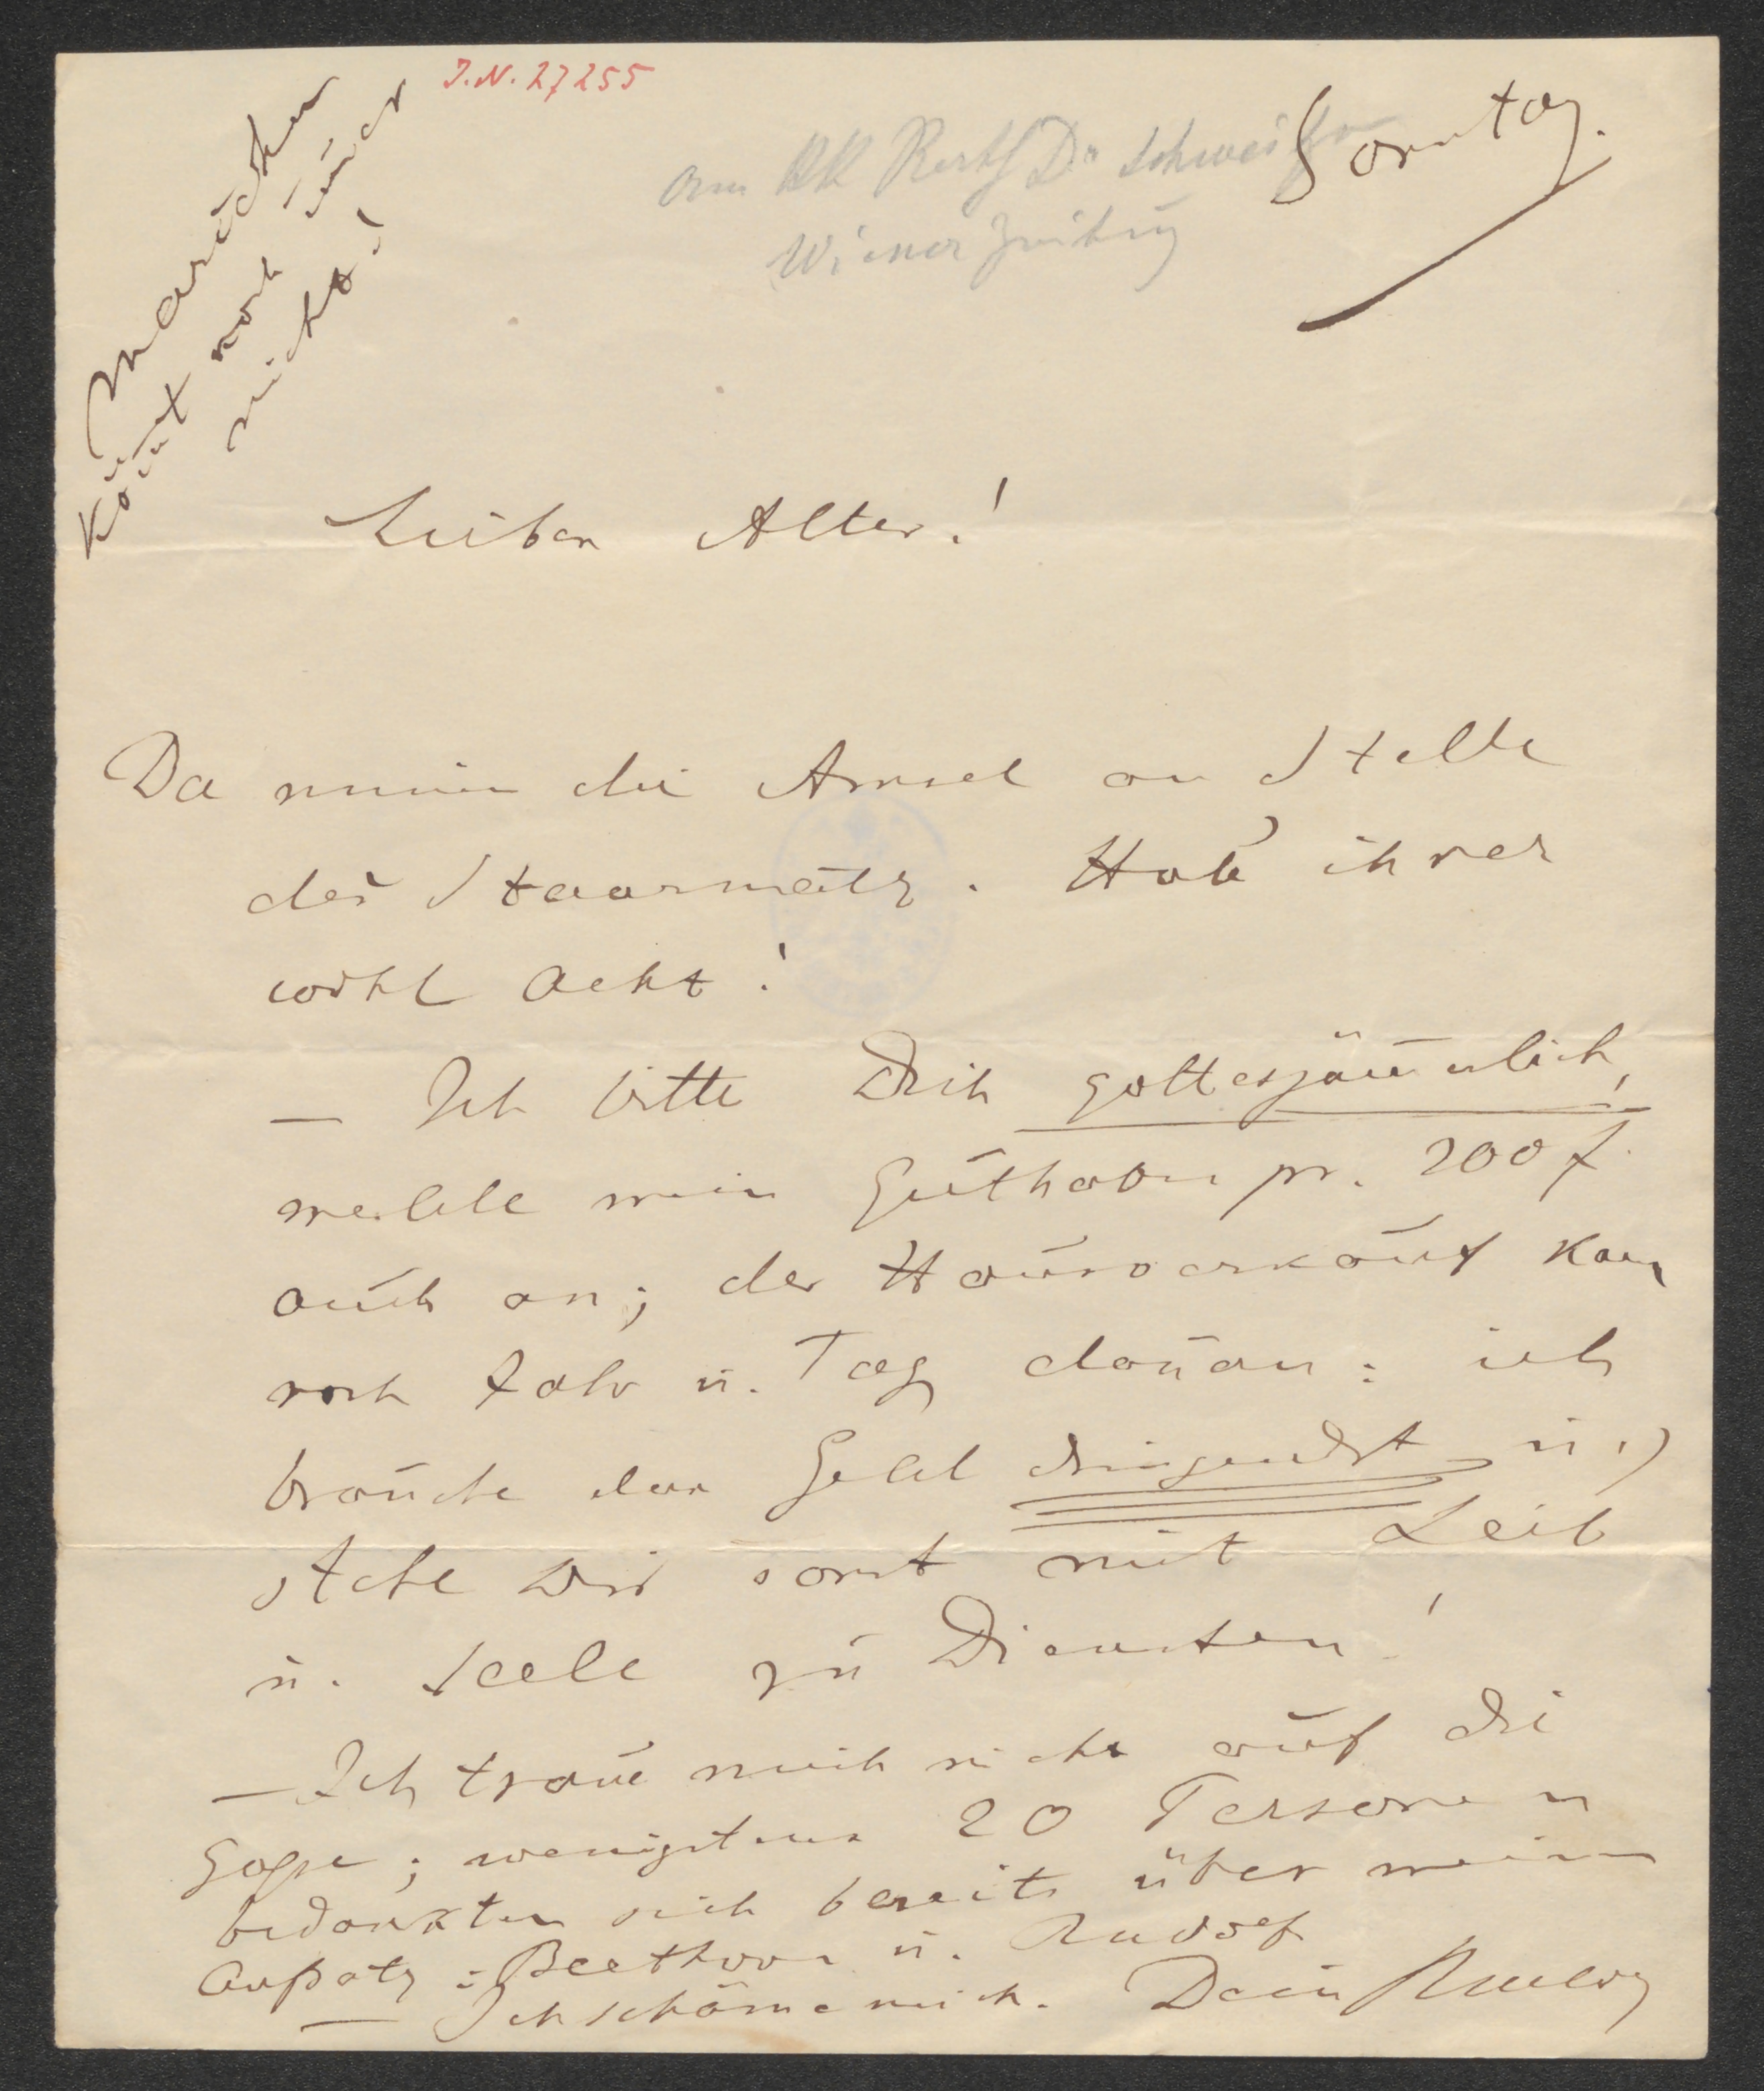 J.N. 27255
Sonntag.
Wiener Zeitung
Marichen
kom̄t noch im̄er
nicht!
Lieber Alter!
Da nim̄ die Amsel an Stelle
des Staarmatz. Hab' ihrer
wohl Acht!
— Ich bitte Dich gottesjäm̄erlich,
melde mein Guthaben pr. 200 f.
auch an; der Hausverkauf kan̄
noch Jahr u. Tag dauern: ich
brauche das Geld dringendst u.
stehe Dir sonst mit Leib
u. Seele zu Diensten!
— Ich traue mich nicht auf die
Gasse; wenigstens 20 Personen
bedankten sich bereits über meinen
Aufsatz: Beethoven u. Rudolf
— Ich schäme mich. Dein